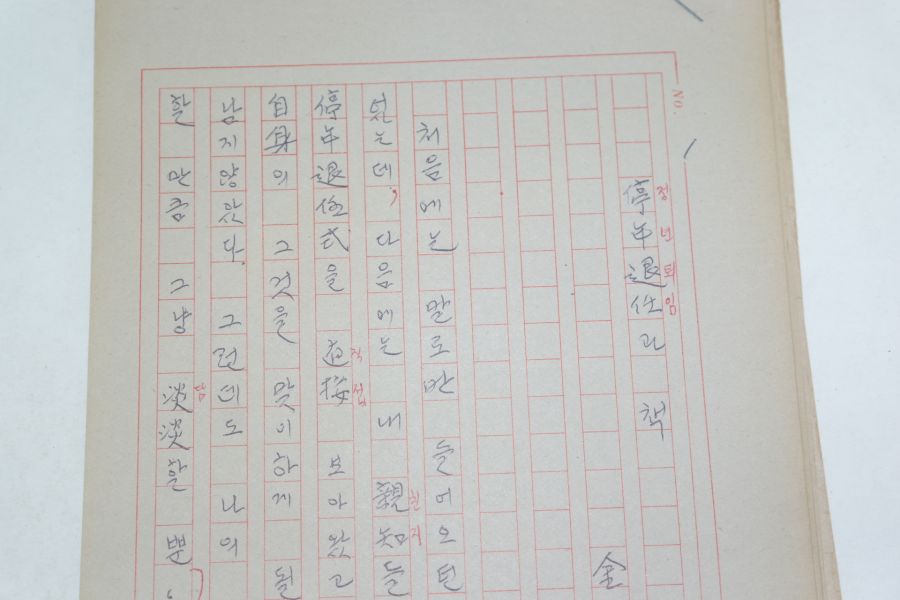 No.
停年退任과 책
정년퇴임
金
처음에는 말로만 들어오던
었는데, 다음에는 내 親知들
친지
停年退任式을 直接 보아왔고
직접
自身의 그것을 맞이하게 될
남지 않았다. 그런데도 나의
할 만큼 그냥 淡淡할 뿐
담